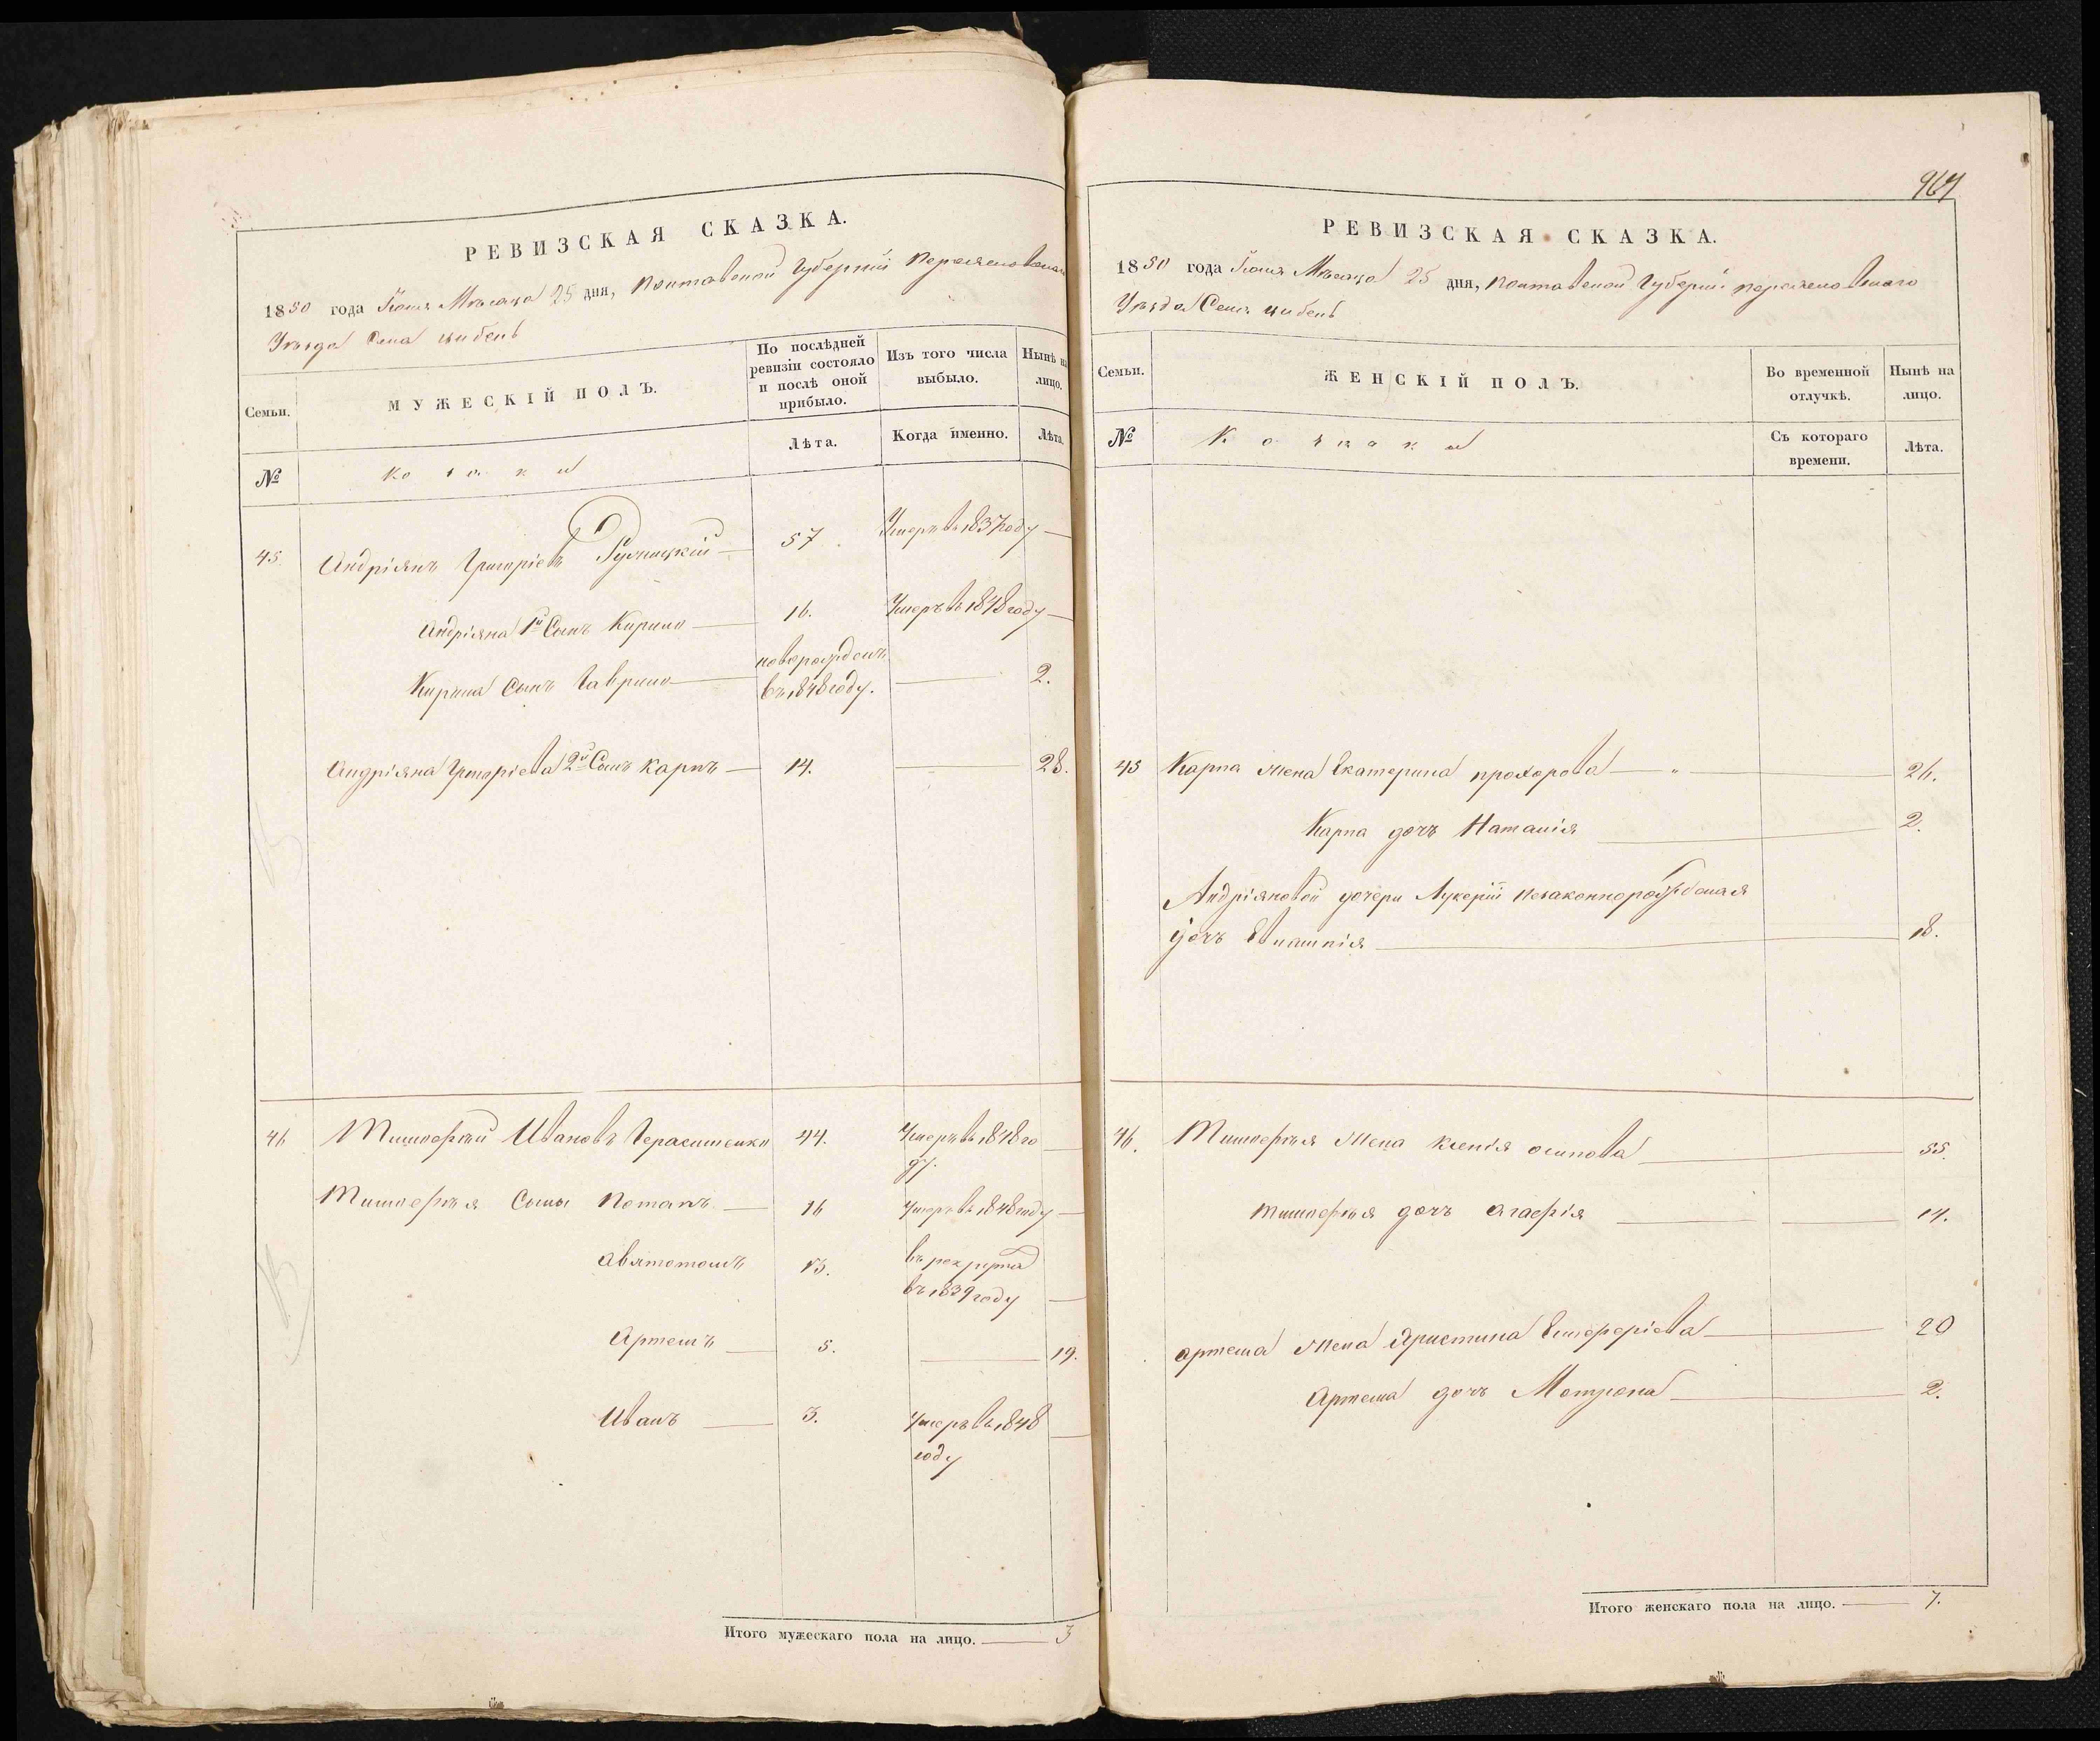 РЕВИЗСКАЯ СКАЗКА.
1850 года Іюня Мѣсяца 25 дня, Полтавской Губерніи Переяславскаго
Уѣзда Села Цибель
Семьи.
МУЖЕСКІЙ ПОЛЪ.
По послѣдней ревизіи состояло и послѣ оной прибыло.
Изъ того числа выбыло.
Нынѣ на лицо.
№
козаки
Лѣта.
Когда именно.
Лѣта.
45 Андріянъ Григоріевъ 57 Умеръ въ 1837 году —
Андріяна 1й Сынъ Кирило — 16. Умеръ въ 1848 году —
Кирила Сынъ Гаврило — новорожденъ въ 1848 году. — 2.
Андріяна Григоріева 2й Сынъ Карпъ — 14. — 28.
46 Тимофѣй Ивановъ Герасименко 44. Умеръ въ 1848 году. —
Тимофѣя Сыны Потапъ — 16 Умеръ въ 1848 году —
Автономъ 13. въ рекрута въ 1839 году —
Артемъ — 5. — 19.
Иванъ — 3. Умеръ въ 1848 году —
Итого мужескаго пола на лицо. — 3
964
РЕВИЗСКАЯ СКАЗКА.
1850 года Іюня Мѣсяца 25 дня, Полтавской Губерніи Переяславскаго
Уѣзда Села Цибель
Семьи.
ЖЕНСКІЙ ПОЛЪ.
Во временной отлучкѣ.
Нынѣ на лицо.
№
Козаки
Съ котораго времени.
Лѣта.
45 Карпа жена Екатерина Прохорова — " — 26.
Карпа дочь Наталія — 2.
Андріяновой дочери Лукеріи незаконнорожденная
дочь — 18.
46. Тимофѣя жена Ксенія Осипова — 55.
Тимофѣя дочь Агафія — — 14.
Артема жена Христина — 20
Артема дочь Мотрона — 2.
Итого женскаго пола на лицо. — 7.